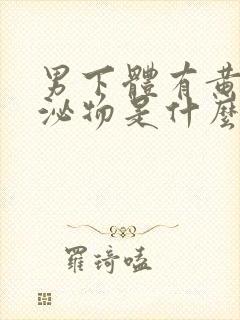 男下體有黃
泌物是什麼
羅琦嗑